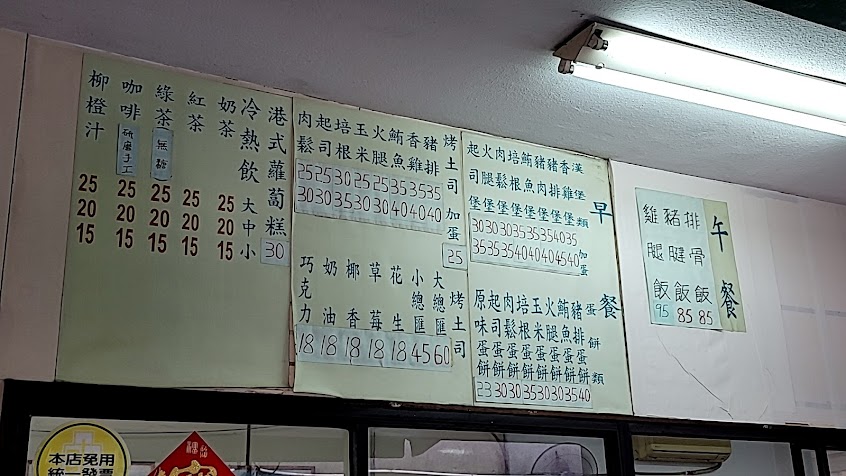 午餐
排骨飯 85
豬腱飯 85
雞腿飯 95
早餐
漢堡類 加蛋
香雞堡 35 40
豬排堡 40 45
豬肉堡 35 40
鮪魚堡 35 40
培根堡 35 40
肉鬆堡 30 35
火腿堡 30 35
起司堡 30 35
蛋餅類
豬排蛋餅 40
鮪魚蛋餅 35
火腿蛋餅 30
玉米蛋餅 30
培根蛋餅 35
肉鬆蛋餅 30
起司蛋餅 30
原味蛋餅 23
烤土司 加蛋
豬排 35 40
香雞 35 40
鮪魚 35 40
火腿 25 30
玉米 25 30
培根 30 35
起司 25 30
肉鬆 25 30
25
烤土司
大總匯 60
小總匯 45
花生 18
草莓 18
椰香 18
奶油 18
巧克力 18
港式蘿蔔糕 30
冷熱飲 大 中 小
奶茶 25 20 15
紅茶 25 20 15
綠茶 無糖 25 20 15
咖啡 研磨手工 25 20 15
柳橙汁 25 20 15
本店免用
統一發票